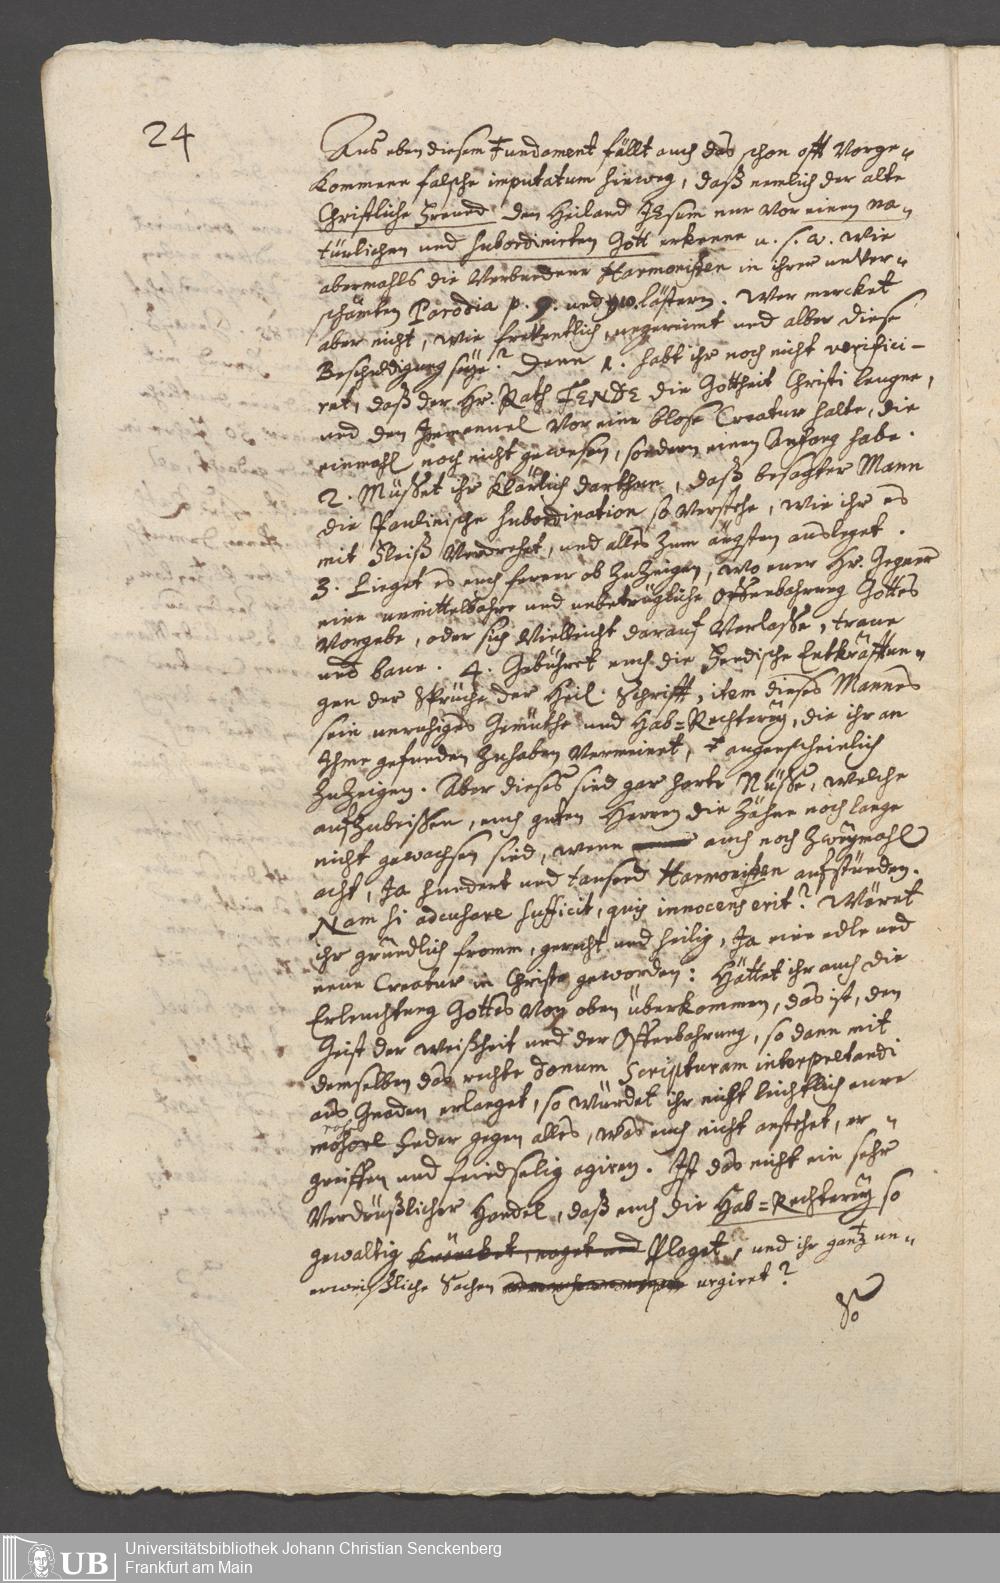 24
Aus eben diesem Fundament fällt auch das schon offt Vorge-
kommene falsche imputatum hinweg, daß nemlich der alte
Christliche Freund den Heiland JEsum nur vor einen na-
türlichen und subordinirten Gott erkenne u. s. w. wie
abermahls die Verbundene Harmonisten in ihrer unver-
schämten Parodia p. 9. und lästern. Wer mercket
aber nicht, wie freventlich, ungereimt und alber diese
Beschuldigung seye? Denn 1. habt ihr noch nicht verifici-
ret, daß der Hr. Rath FENDE die Gottheit Christi leugne,
und den Immanuel vor eine blose Creatur halte, die
einmahl noch nicht gewesen, sondern einen Anfang habe.
2. Müsset ihr klärlich darthun, daß besagter Mann
die Paulinische Subordination so verstehe, wie ihr es
mit Fleiß verdrehet, und alles zum ärgsten ausleget.
3. Lieget es euch ferner ob zuzeigen, wo euer Hr. Gegner
eine unmittelbahre und unbetrügliche Offenbahrung Gottes
vorgebe, oder sich vielleicht darauf verlasse, traue
und baue. 4. Gebühret euch die Fendische Entkräfftun-
gen der Sprüche der Heil. Schrifft, item dieses Mannes
sein unruhiges Gemüthe und Hab=Rechterey, die ihr an
Ihme gefunden zuhaben vermeinet, augenscheinlich
zuzeigen. Aber dieses sind gar harte Nüsse, welche
aufzubeißen, euch guten Herren die Zähne noch lange
nicht gewachsen sind, wenn auch noch zweymahl
acht, Ja hundert und tausend Harmonisten aufstünden.
Nam si accusare sufficit, quis innocens erit? Wäret
ihr gründlich fromm, gerecht und heilig, Ja eine edle und
neue Creatur in Christo geworden: Hättet ihr auch die
Erleuchtung Gottes von oben überkommen, das ist, den
Geist der Weißheit und der Offenbahrung, so dann mit
demselben das rechte donum Scripturam interpretandi
aus Gnaden erlanget, so würdet ihr nicht leichtlich eure
Feder gegen alles, was euch nicht anstehet, er-
greiffen und feindselig agiren. Ist das nicht ein sehr
verdrüßlicher Handel, daß euch die Hab=Rechterey so
gewaltig kräncket, naget und Plaget, und ihr gantz un-
erweißliche Sachen urgiret?
So
UB
Universitätsbibliothek Johann Christian Senckenberg
Frankfurt am Main